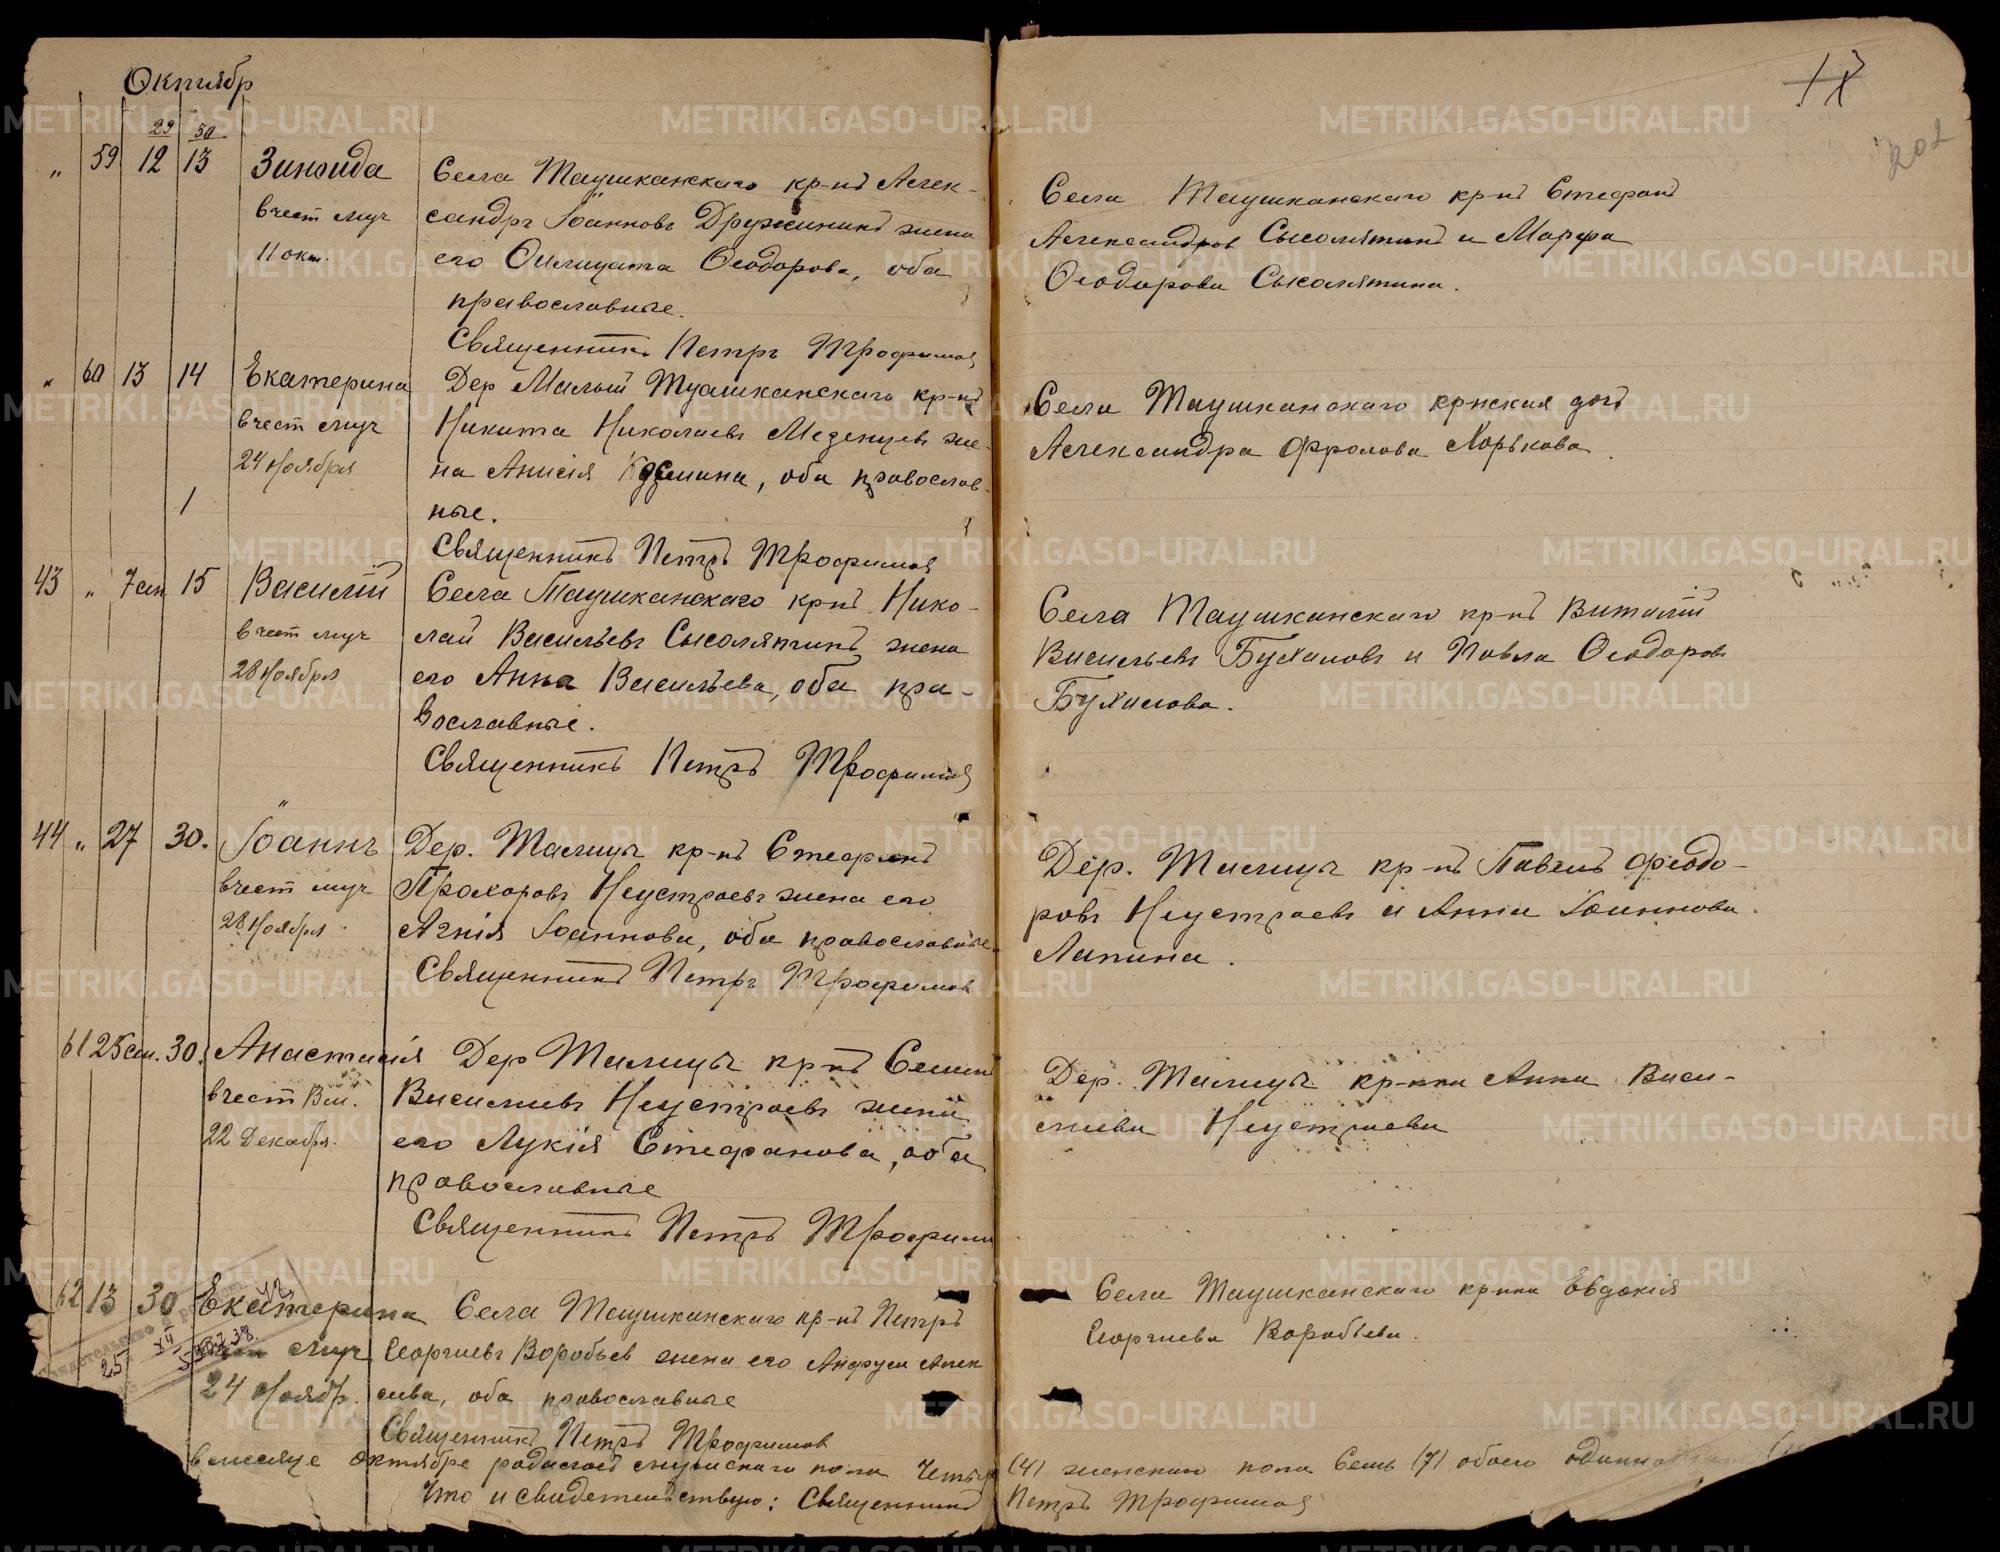 Октябр
17
202
29 30
" 59 12 13 Зинаида
в чест муч
11 окт.
Села Таушканскаго кр-нъ Алек-
сандръ Іоанновъ Дружининъ жена
его Феодорова, оба
православные.
Священникъ Петръ Трофимов
Села Таушканскаго кр-нъ Стефанъ
Александров Сысолятинъ и Марфа
Феодорова Сысолятина.
" 60 13 14 Екатерина
в чест муч
24 Ноября
Дер Малый Таушканскаго кр-нъ
Никита Николаевъ Мезенцевъ же-
на Анисія Космина, оба православ-
ные.
Священникъ Петръ Трофимов
Села Таушканскаго кр-нская дочь
Александра Фролова Хорькова.
43 " 7 сен 15 Василій
в чест муч
28 Ноября
Села Таушканскаго крнъ Нико-
лай Васильевъ Сысолятинъ жена
его Анна Васильева, оба пра-
вославные.
Священникъ Петръ Трофимов
Села Таушканскаго кр-нъ Виталій
Васильевъ и Павла Феодоров
44 " 27 30. Іоаннъ
в чест муч
28 Ноября
Дер. Талицы кр-нъ Стефанъ
Прохоровъ Неустроевъ жена его
Агнія Іоаннова, оба православные.
Священникъ Петръ Трофимов
Дер. Талицы кр-нъ Павелъ Феодо-
ровъ Неустроевъ и Анна Іоаннова
Лапина.
61 25 сен. 30. Анастасія
в чест Вел.
22 Декабря.
Дер Талицы кр-нъ Семен
Васильевъ Неустроевъ жена
его Лукія Стефанова, оба
православные
Священникъ Петръ Трофимов
Дер. Талицы кр-нка Анна Васи-
льева Неустроева
62 13 30 Екатерина
муч
24 Ноябр.
25 XII
Села Таушканскаго кр-нъ Петръ
Георгиевъ Воробьев жена его Алек
сиева, оба православные
Священникъ Петръ Трофимов
Села Таушканскаго крнка Евдокія
Георгиева Воробьева.
в месяце октябре родилось мужскаго пола четыре (4) женскаго пола семь (7) обоего
Что и свидетельствую: Священникъ Петръ Трофимов
METRIKI.GASO-URAL.RU